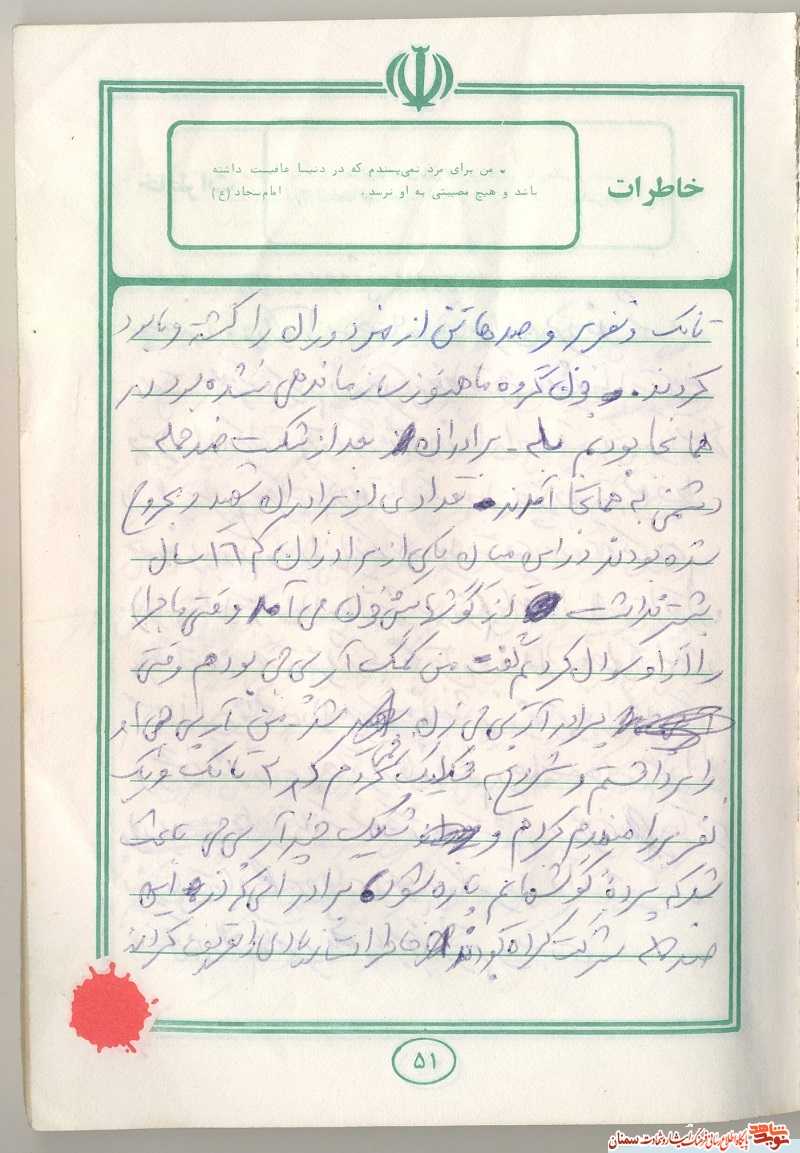 خاطرات
• من برای مرد نمی‌پسندم که در دنیا عافیت داشته
باشد و هیچ مصیبتی به او نرسد. امام سجاد (ع)
تانک و نفربر و صدها تن از مزدوران را کشته و نابود
کردند. چون گروه ما هنوز سازماندهی نشده بود در
همانجا بودیم بله - برادران بعد از شکست ضد حمله
دشمن به همانجا آمدند. تعدادی از برادران شهید و مجروح
شده بودند در این میان یکی از برادران که ۱۶ سال
بیشتر نداشت از گوشهایش خون می آمد وقتی ماجرا
را از او سوال کردیم گفت من کمک آر پی جی بودم وقتی
برادر آر پی جی زن شد من آر پی جی او
را برداشتم و شروع به شلیک کردم که ۲ تانک و یک
نفربر را منهدم کردم و شلیک چند آر پی جی باعث
شد که پرده گوشهایم پاره شود برادرانی که در این
ضد حمله شرکت کرده بودند خاطرات زیادی را تعریف کردند
۵۱
نوید شاهد پایگاه اطلاع رسانی فرهنگ ایثار و شهادت سمنان